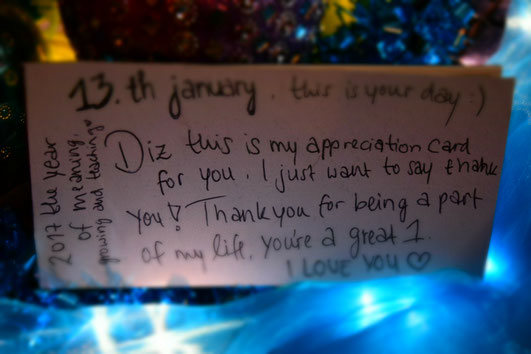 13.th january. this is your day :)
Diz this is my appreciation card
for you. I just want to say thank
you! Thank you for being a part
of my life. you're a great 1.
I LOVE YOU ♡
2017 the year
of meaning,
growing and teaching